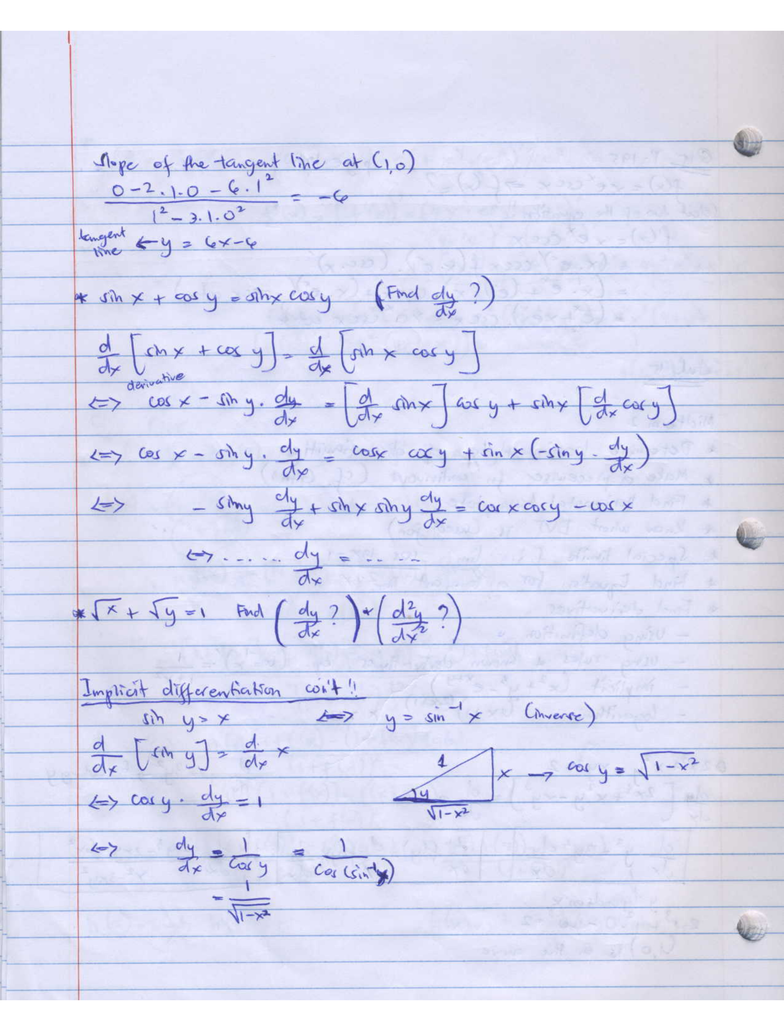 Slope of the tangent line at (1,0)
(0-2.1.0 - 6.1²)/(1² - 3.1.0²) = -6
tangent line ← y = 6x-6
* sin x + cos y = sin x cos y (Find dy/dx ?)
d/dx [sin x + cos y] = d/dx [sin x cos y]
derivative
<=> cos x - sin y . dy/dx = [d/dx sin x] cos y + sin x [d/dx cos y]
<=> cos x - sin y . dy/dx = cos x cos y + sin x (-sin y . dy/dx)
<=> - sin y dy/dx + sin x sin y dy/dx = cos x cos y - cos x
<=> ...... dy/dx = ......
* √x + √y = 1 Find (dy/dx ?) * (d²y/dx² ?)
Implicit differentiation con't !!
sin y = x <=> y = sin⁻¹ x (inverse)
d/dx [sin y] = d/dx x
1 x y √1-x² → cos y = √1-x²
<=> cos y . dy/dx = 1
<=> dy/dx = 1/cos y = 1/cos(sin⁻¹x)
= 1/√1-x²